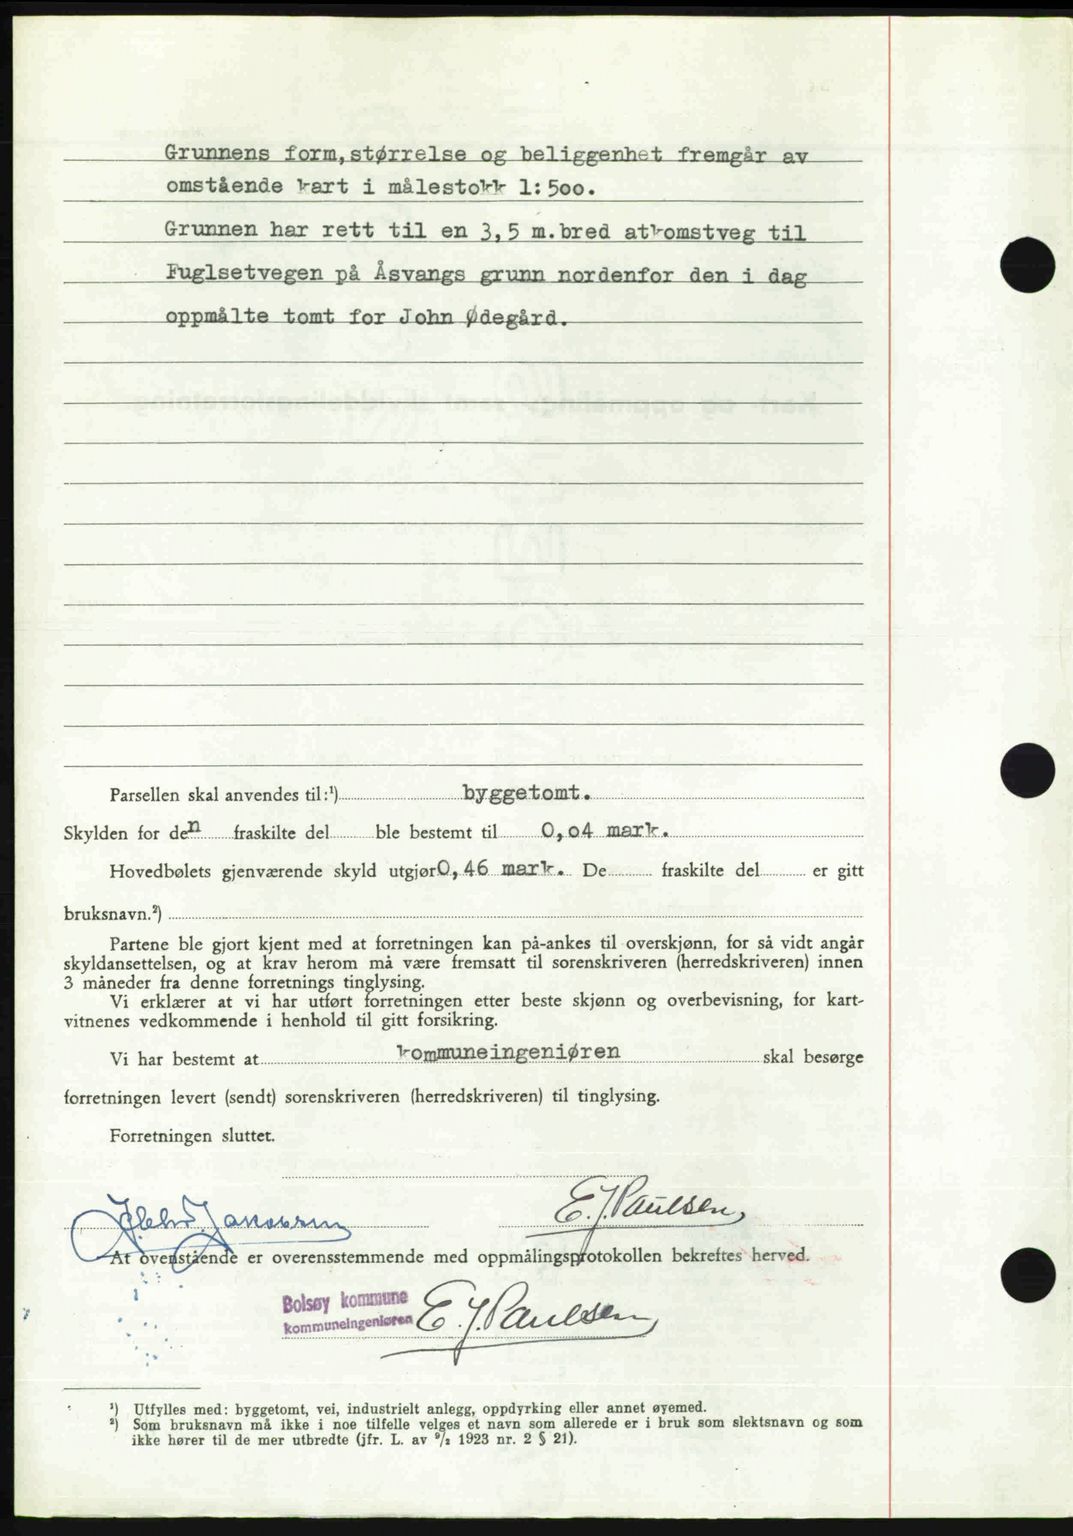 Grunnens form, størrelse og beliggenhet fremgår av
omstående kart i målestokk 1:500.
Grunnen har rett til en 3,5 m.bred atkomstveg til
Fuglsetvegen på Åsvangs grunn nordenfor den i dag
oppmålte tomt for John Ødegård.
Parsellen skal anvendes til:¹) byggetomt.
Skylden for den fraskilte del ble bestemt til 0,04 mark.
Hovedbølets gjenværende skyld utgjør 0,46 mark. De fraskilte del er gitt
bruksnavn.²)
Partene ble gjort kjent med at forretningen kan på-ankes til overskjønn, for så vidt angår
skyldansettelsen, og at krav herom må være fremsatt til sorenskriveren (herredskriveren) innen
3 måneder fra denne forretnings tinglysing.
Vi erklærer at vi har utført forretningen etter beste skjønn og overbevisning, for kart-
vitnenes vedkommende i henhold til gitt forsikring.
Vi har bestemt at kommuneingeniøren skal besørge
forretningen levert (sendt) sorenskriveren (herredskriveren) til tinglysing.
Forretningen sluttet.
E.J. Paulsen
At ovenstående er overensstemmende med oppmålingsprotokollen bekreftes herved.
Bolsøy kommune
kommuneingeniøren E.J. Paulsen
¹) Utfylles med: byggetomt, vei, industrielt anlegg, oppdyrking eller annet øyemed.
²) Som bruksnavn må ikke i noe tilfelle velges et navn som allerede er i bruk som slektsnavn og som
ikke hører til de mer utbredte (jfr. L. av ⁹/₂ 1923 nr. 2 § 21).